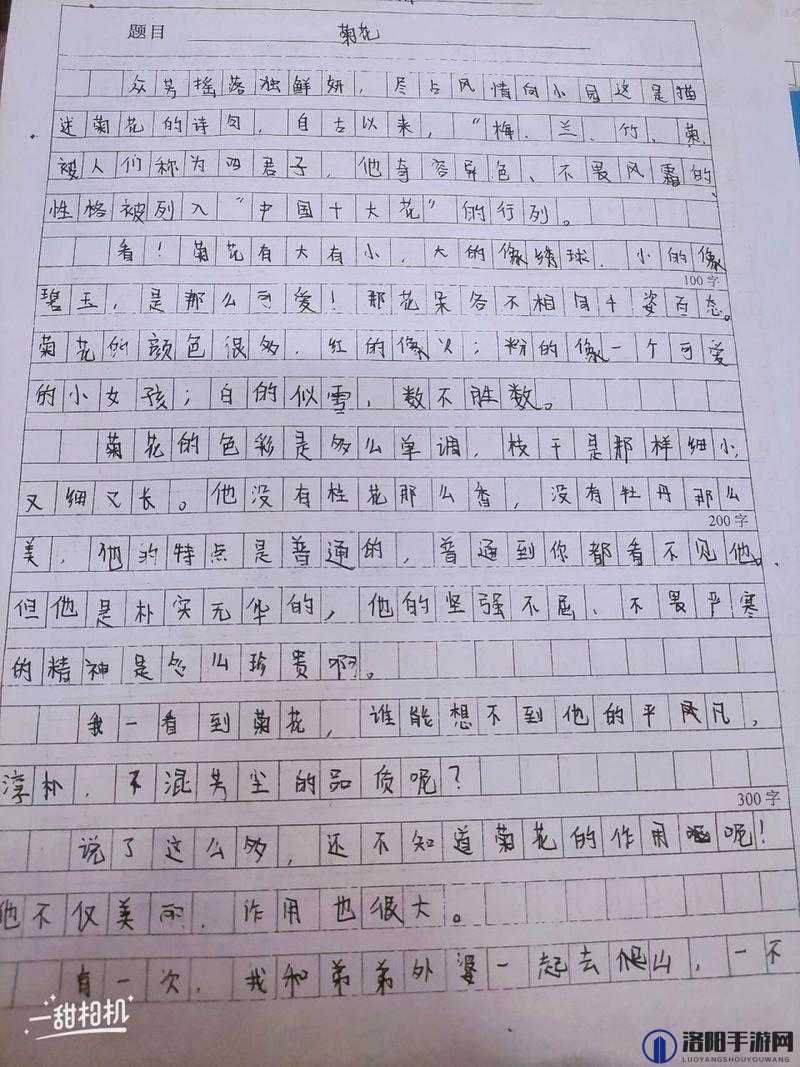 题目 菊花
众芳摇落独鲜妍，尽占风情向小园这是描
迷菊花的诗句，自古以来，“梅、兰、竹、菊
被人们称为四君子，他奇容异色、不畏风霜的
性格被列入“中国十大花”的行列。
看！菊花有大有小，大的像绣球，小的像
100字
碧玉，是那么可爱！那花朵各不相同千姿百态。
菊花的颜色很多，红的像火；粉的像一个可爱
的小女孩；白的似雪，数不胜数。
菊花的色彩是多么单调，枝干是那样细小，
又细又长。他没有桂花那么香，没有牡丹那么
200字
美，他的特点是普通的，普通到你都看不见他。
但他是朴实无华的，他的坚强不屈、不畏严寒
的精神是多么珍贵啊。
我一看到菊花，谁能想不到他的平凡，
淳朴，不混芳尘的品质呢？
300字
说了这么多，还不知道菊花的作用呢！
他不仅美丽，作用也很大。
有一次，我和弟弟外婆一起去爬山，一不
一甜相机
洛阳手游网
LUOYANGSHOUYOUWANG